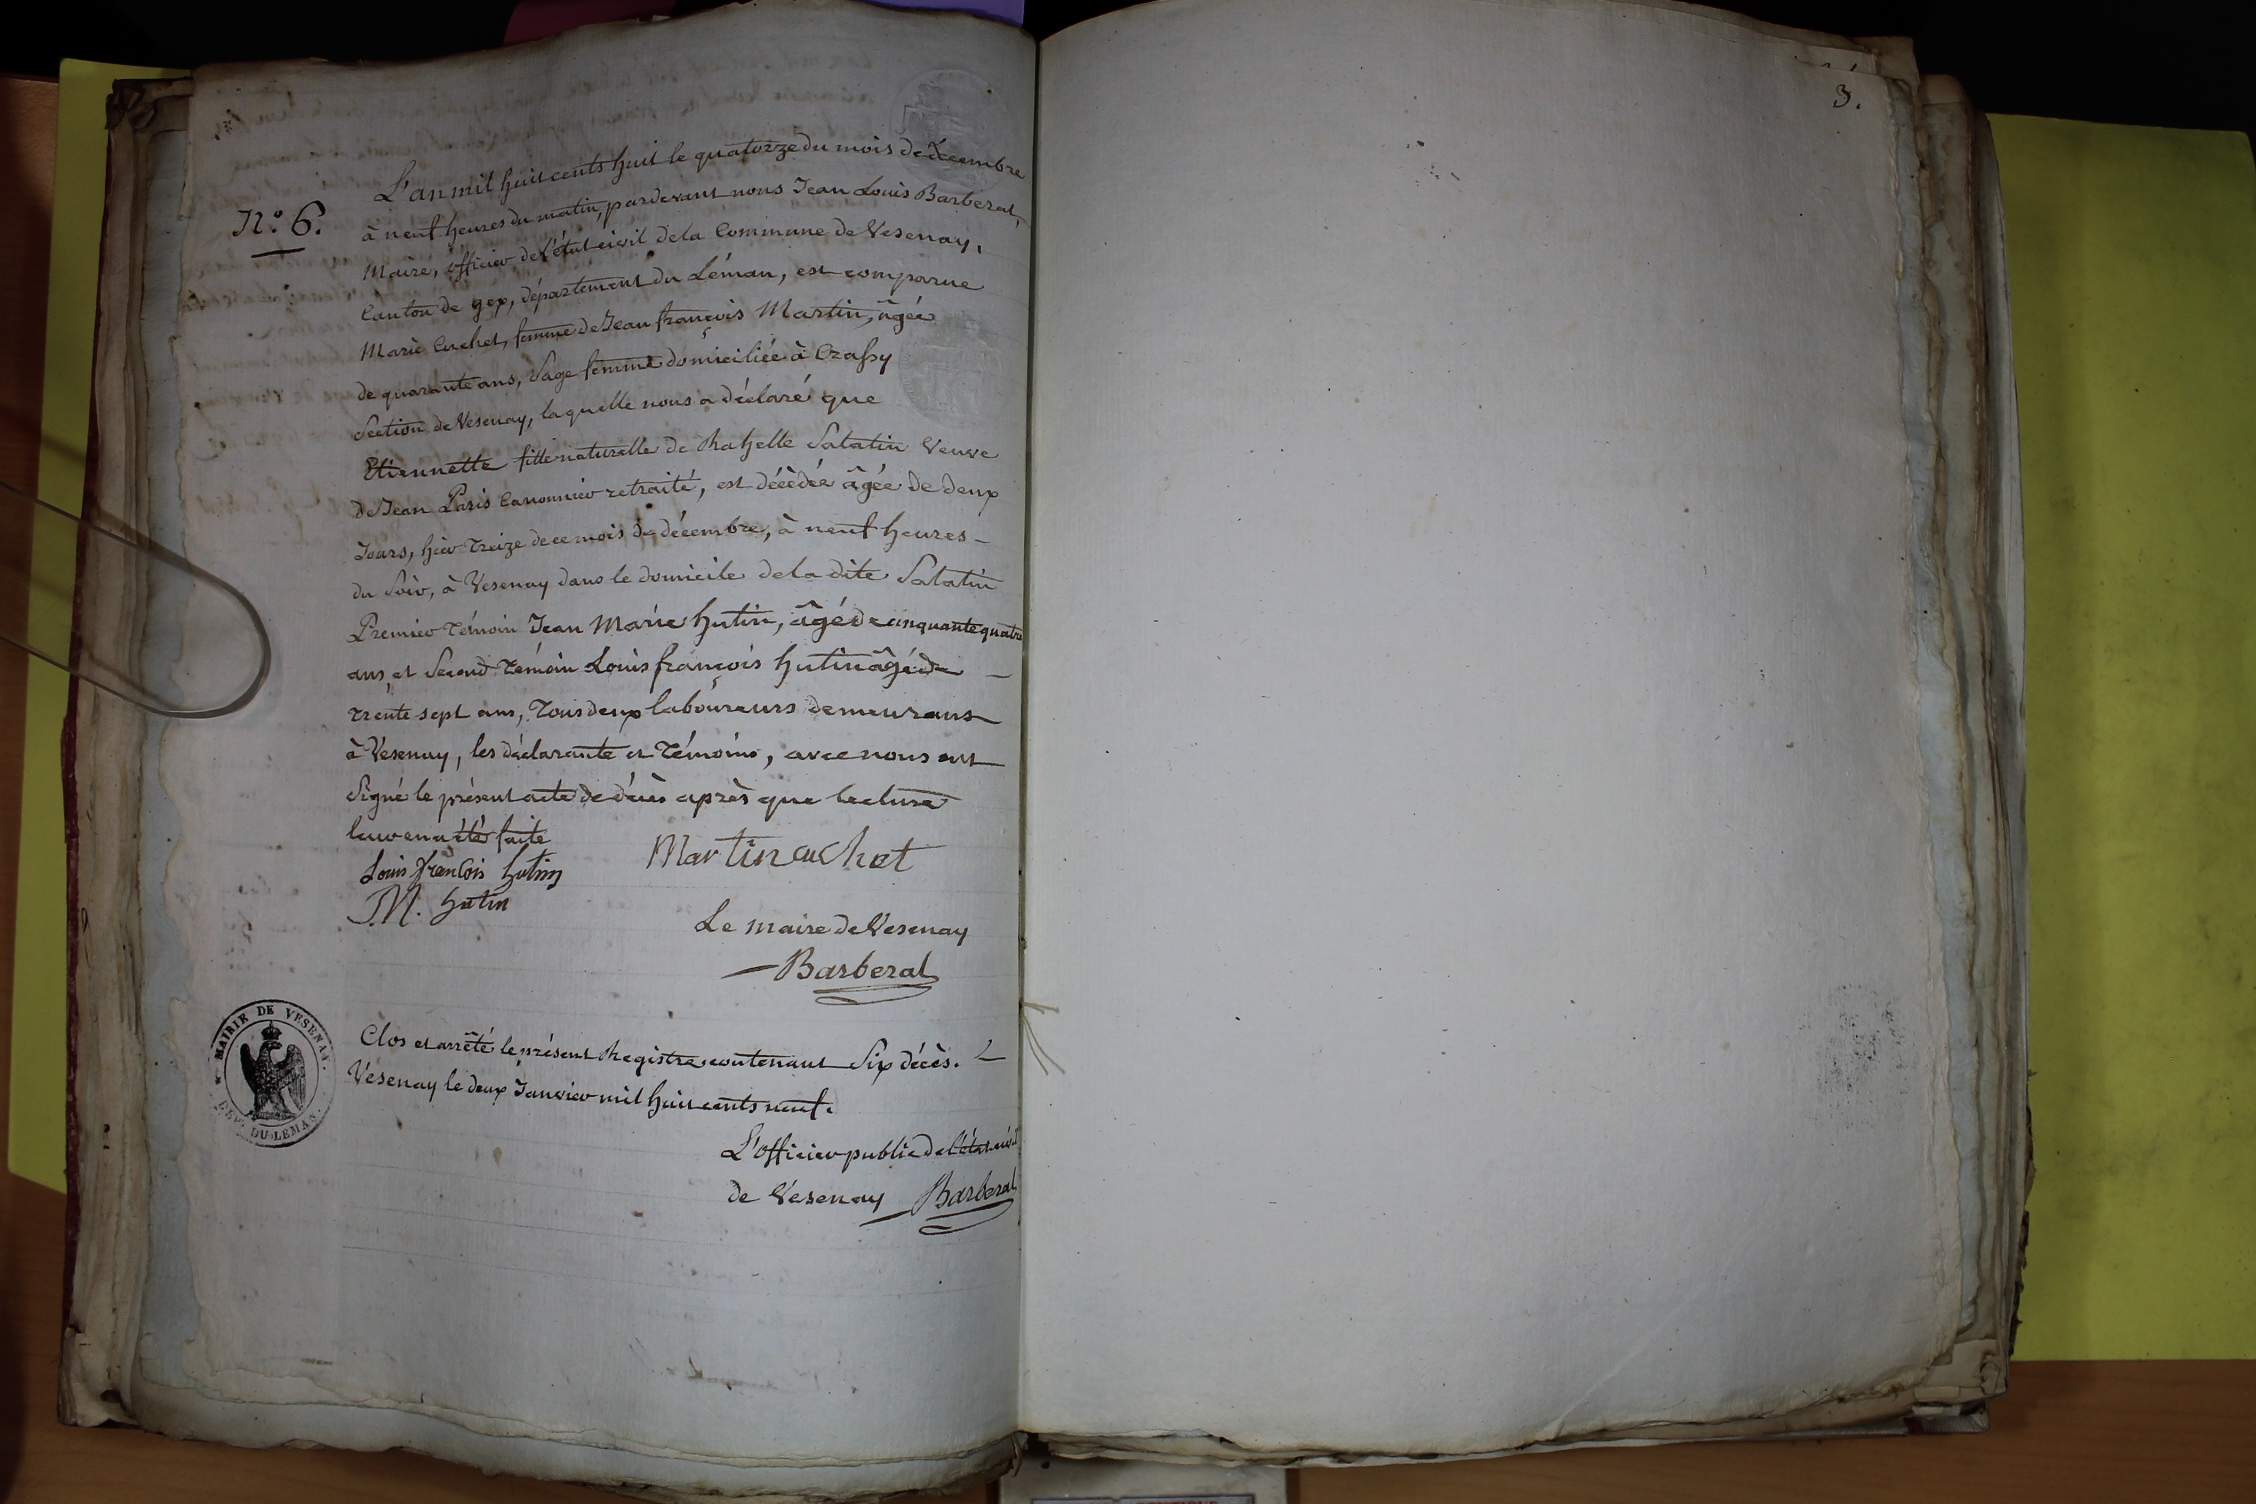 N.° 6.
L'an mil huit cents huit le quatorze du mois de décembre
à neuf heures du matin, pardevant nous Jean Louis Barberat,
Maire, officier de l'état civil de la Commune de Vesenay,
Canton de gex, département du Léman, est comparue
Marie Cuchet, femme de Jean françois Martin, âgée
de quarante ans, Sage femme domiciliée à Crassy
Section de Vesenay, laquelle nous a déclaré que
Etiennette fille naturelle de Rahelle Salatin Veuve
de Jean Paris Canonnier retraité, est décèdée âgée de deux
Jours, hier treize de ce mois de décembre, à neuf heures –
du Soir, à Vesenay dans le domicile de la dite Salatin
Premier témoin Jean Marie hutin, âgé de cinquante quatre
ans, et Second témoin Louis françois hutin âgé de –
trente sept ans, tous deux laboureurs demeurans
à Vesenay, les déclarante et témoins, avec nous ont
Signé le présent acte de décès après que lecture
leur en a été faite
Louis françois hutin
Martin cuchet
J M. hutin
Le maire de Vesenay
Barberat
MAIRIE DE VESENAY.
DEPT. DU LEMAN.
Clos et arrêté le présent Registre contenant Six décès.
Vesenay le deux Janvier mil huit cents neuf.
L'officier public de l'état civil
de Vesenay Barberat
3.